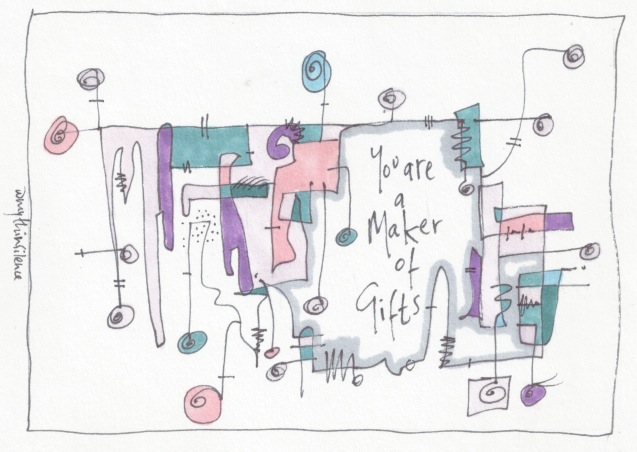 You are
a
Maker
of
Gifts